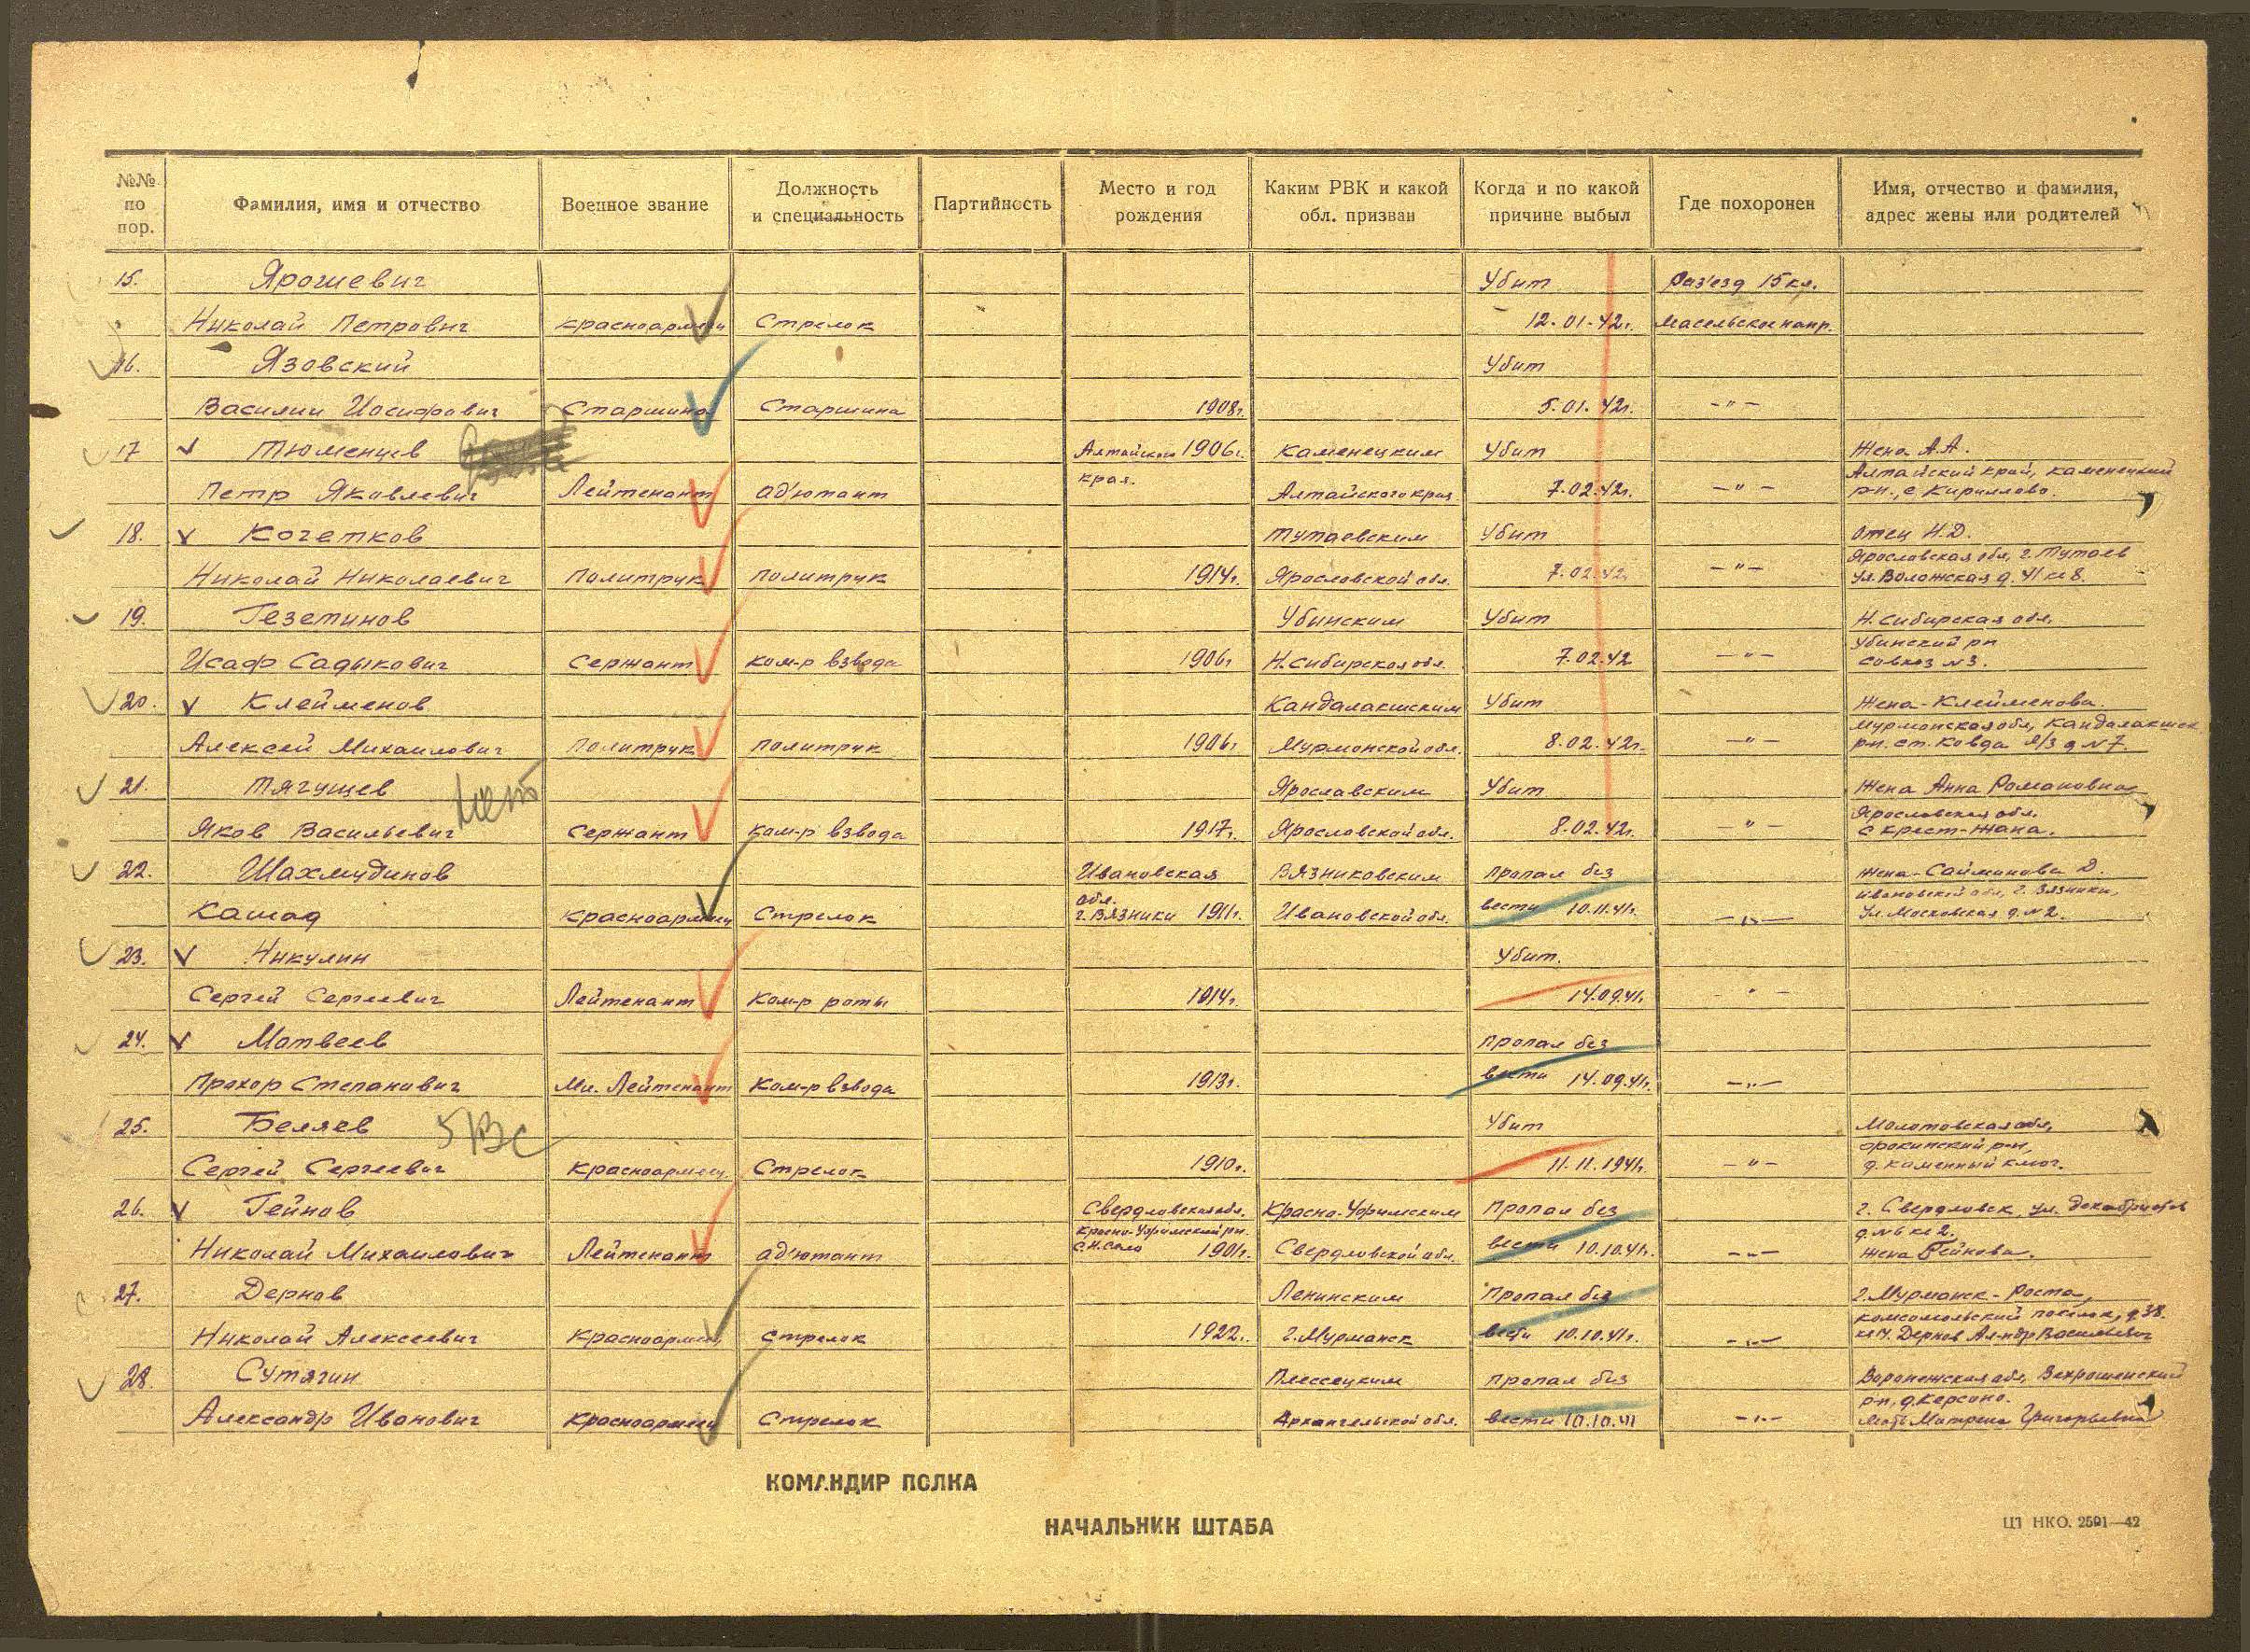 №№ по пор. Фамилия, имя и отчество Военное звание Должность и специальность Партийность Место и год рождения Каким РВК и какой обл. призван Когда и по какой причине выбыл Где похоронен Имя, отчество и фамилия, адрес жены или родителей
15. Ярошевич Убит Раз'езд 15 кл.
Николай Петрович красноармеец Стрелок 12.01.42г. Масельское напр.
16. Язовский Убит
Василии Иосифович Старшина Старшина 1908г. 5.01.42г. —"—
17 Тюменцев Алтайского 1906г. Каменецким Убит Жена А.А.
края. Алтайский край, Каменецкий
Петр Яковлевич Лейтенант ад'ютант Алтайского края 7.02.42г. —"— рн., с Кириллово.
18. Кочетков Тутаевским Убит Отец Н.Д.
Ярославская обл, г. Тутаев
Николай Николаевич Политрук политрук 1914г. Ярословской обл. 7.02.42. —"— ул. Воложская д. 41 кв 8.
19. Гезетинов Убинским Убит Н.Сибирская обл,
Убинский рн
Исаф Садыкович Сержант ком-р взвода 1906г Н.Сибирская обл. 7.02.42 —"— совхоз №3.
20. Клейменов Кандалакшским Убит Жена-Клейменова.
Мурмонская обл, Кандалакшск
Алексей Михаилович Политрук политрук 1906г Мурмонской обл. 8.02.42г. —"— рн. ст. Ковда Л/З д №7.
21. Тягущев Ярославским Убит Жена Анна Романовна
Ярословская обл,
Яков Васильевич Сержант ком-р взвода 1917г. Ярословской обл. 8.02.42г. —"— с крест-Жана.
22. Шахмудинов Ивановская Вязниковским пропал без Жена-Сайманова Д.
обл. ивановской обл, г. Вязники,
Кашад красноармеец Стрелок г. Вязники 1911г. Ивановской обл. вести 10.11.41г. —"— ул. Московская д. №2.
23. Никулин Убит.
Сергей Сергеевич Лейтенант ком-р роты 1914г. 14.09.41г. —"—
24. Матвеев пропал без
Прохор Степанович Мл. Лейтенант ком-р взвода 1913г. вести 14.09.41г. —"—
25. Беляев 5ВС Убит Молотовская обл,
р-н,
Сергей Сергеевич красноармеец Стрелок 1910г. 11.11.1941г. —"— д. каменный ключ.
26. Гейнов Свердловская обл. Красно-Уфимским Пропал без г. Свердловск, ул. декабристов
Красно-Уфимский рн. д. №6 кв 2.
Николай Михаилович Лейтенант ад'ютант 1901г. Свердловской обл. вести 10.10.41г. —"— жена Гейнова.
27. Дернов Ленинским Пропал без г. Мурманск-Роста,
комсомольский поселок, д 38.
Николай Алексеевич красноармеец стрелок 1922г. г. Мурманск вести 10.10.41г. —"— кв 4. Дернов Ал-ндр Васильевич
28. Сутягин Плессецким пропал без Воронежская обл,
рн,
Александр Иванович красноармеец Стрелок Архангельской обл. вести 10.10.41 —"— мать Матрена Григорьевна
КОМАНДИР ПОЛКА
НАЧАЛЬНИК ШТАБА
ЦТ НКО. 2591—42